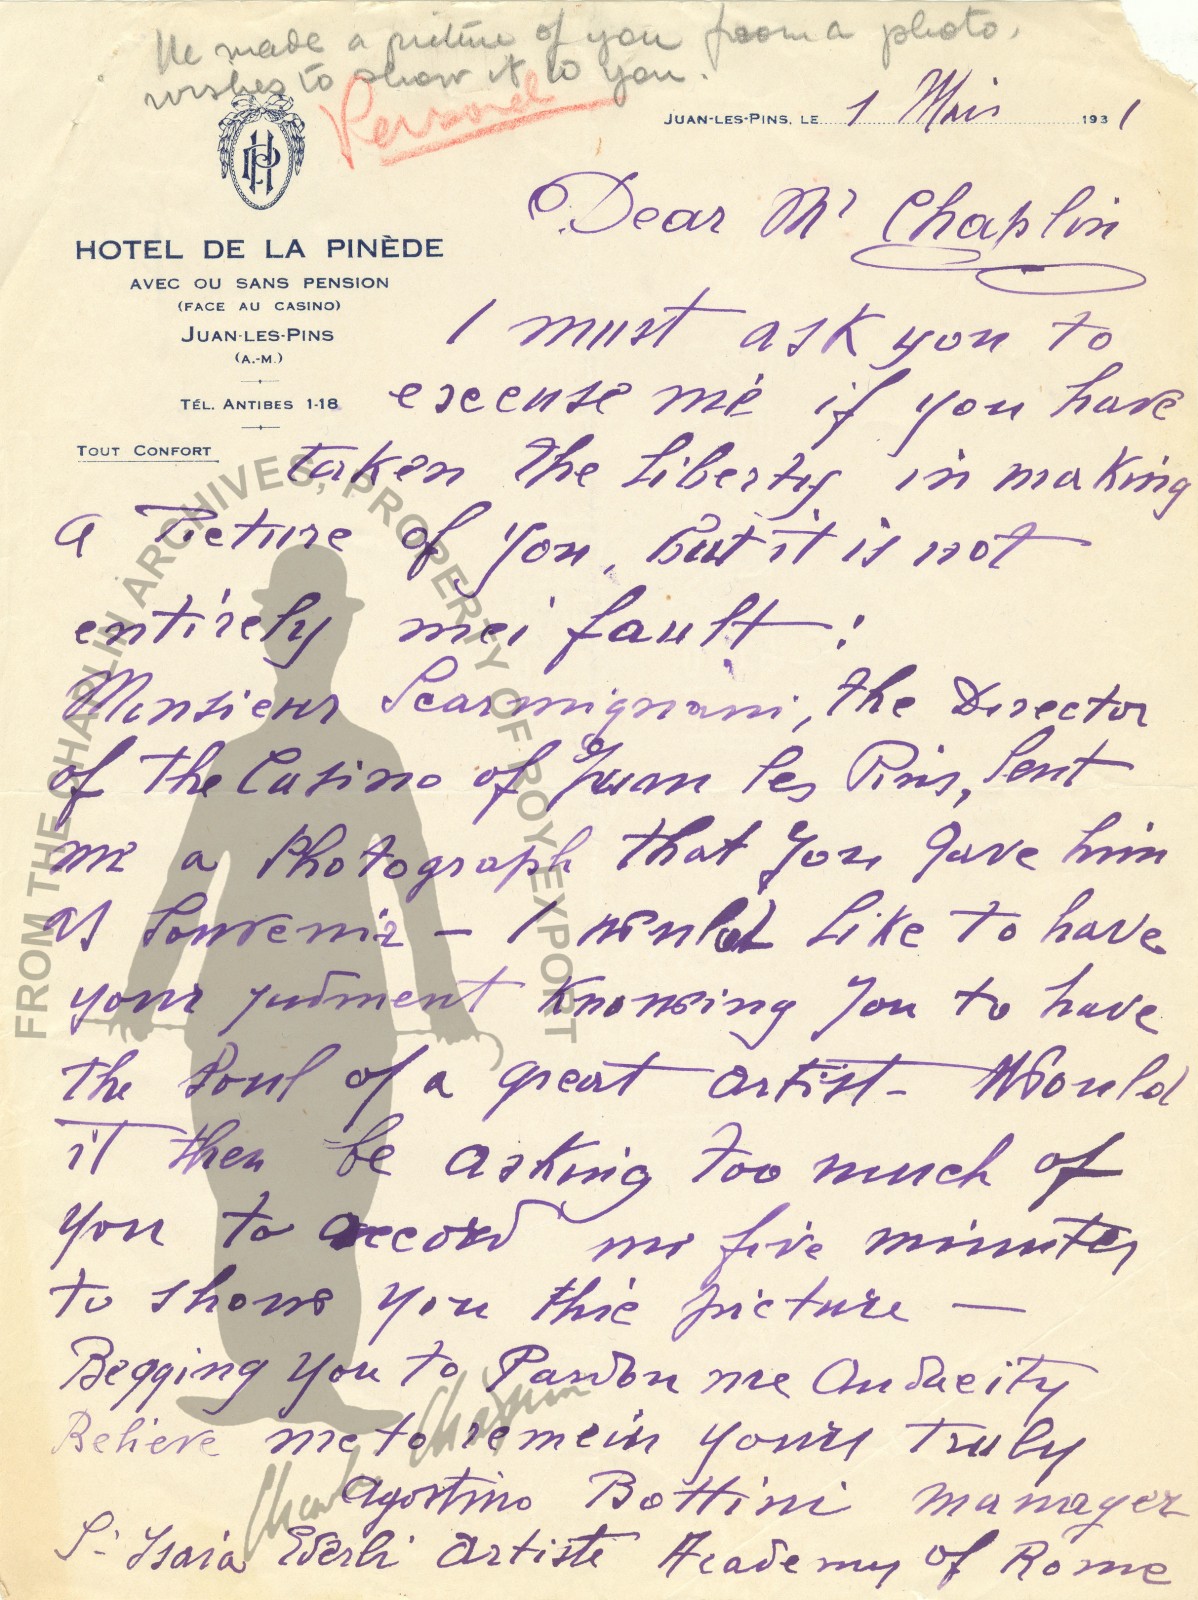 He made a picture of you from a photo,
wishes to show it to you.
Personel
JUAN-LES-PINS, LE 1 Mais 1931
HP
HOTEL DE LA PINÈDE
AVEC OU SANS PENSION
(FACE AU CASINO)
JUAN-LES-PINS
(A.-M.)
TÉL. ANTIBES 1-18
TOUT CONFORT
Dear Mr Chaplin
I must ask you to
excuse me if you have
taken the liberty in making
a Picture of you, but it is not
entirely mei fault:
Monsieur Scarmignani, the Director
of the Casino of Juan les Pins, sent
me a Photograph that you gave him
as souvenir - I would like to have
your judment knowing you to have
the soul of a great artist - Would
it then be asking too much of
you to accord me five minutes
to show you thie picture —
Begging you to Pardon me audacity
Believe me to remein yours truly
Agostino Bottini manager
S. Isaia Ederli artiste Academy of Rome
FROM THE CHAPLIN ARCHIVES, PROPERTY OF ROY EXPORT
Charles Chaplin